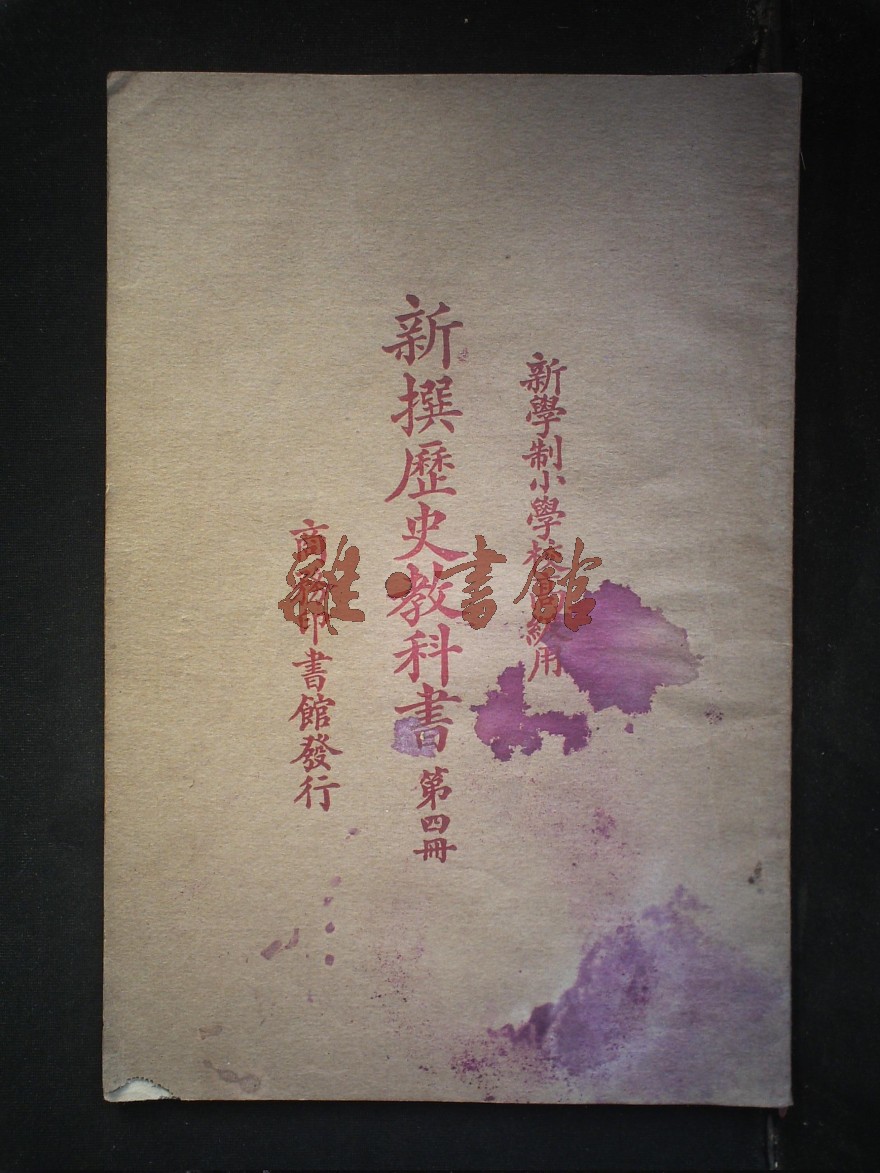 新學制小學校高級用
新撰歷史教科書 第四冊
商務印書館發行
雜·書館